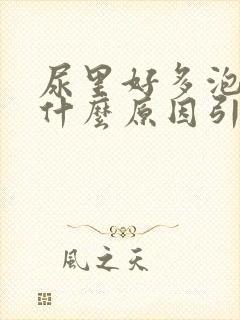 尿里好多泡
什麼原因引
風之天